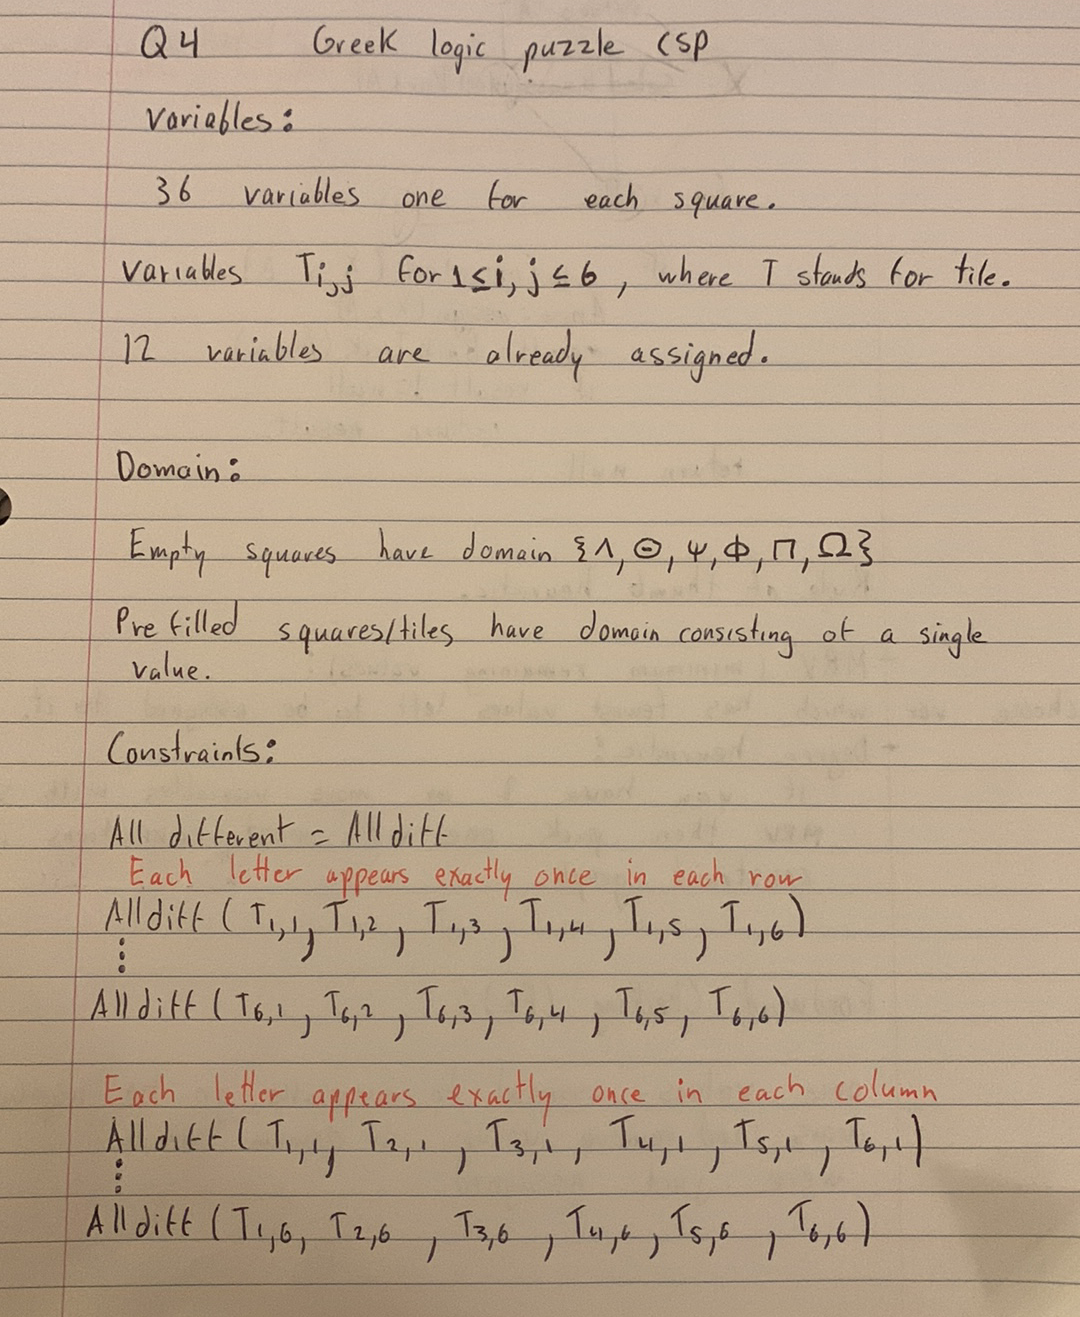 Q4 Greek logic puzzle CSP
Variables:
36 variables one for each square.
Variables Ti,j for 1≤i, j≤6, where T stands for tile.
12 variables are already assigned.
Domain:
Empty squares have domain {Λ, Θ, Ψ, Φ, Π, Ω}
Prefilled squares/tiles have domain consisting of a single
value.
Constraints:
All different = Alldiff
Each letter appears exactly once in each row
Alldiff (T1,1, T1,2, T1,3, T1,4, T1,5, T1,6)
⋮
Alldiff (T6,1, T6,2, T6,3, T6,4, T6,5, T6,6)
Each letter appears exactly once in each column
Alldiff (T1,1, T2,1, T3,1, T4,1, T5,1, T6,1)
⋮
Alldiff (T1,6, T2,6, T3,6, T4,6, T5,6, T6,6)